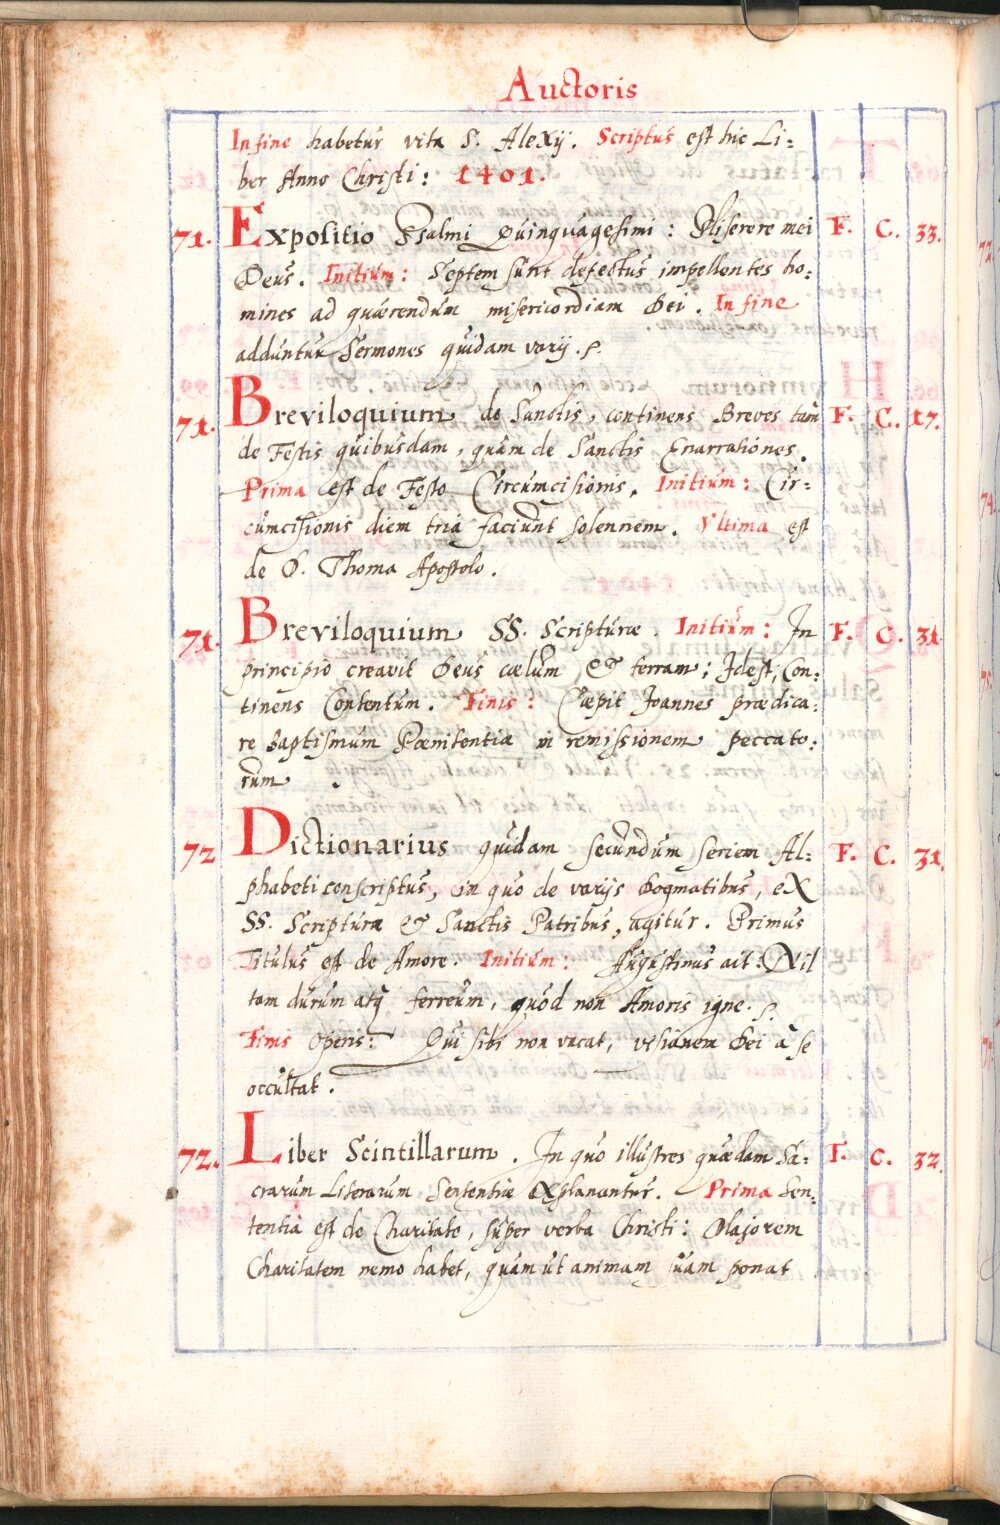 Auctoris
In fine habetur vita S. Alexij. Scriptus est hic Li:
ber Anno Christi: 1401.
71. Expositio Psalmi Quinquagesimi: Miserere mei F. C. 33.
Deus. Initium: Septem sunt defectus impellentes ho:
mines ad quærendum misericordiam Dei. In fine
adduntur Sermones quidam varij.
71. Breviloquium de Sanctis, continens Breves tam F. C. 17.
de Festis quibusdam, quàm de Sanctis Enarrationes.
Prima est de Festo Circumcisionis, Initium: Cir:
cumcisionis diem tria faciunt solennem. Ultima est
de S. Thoma Apostolo.
71. Breviloquium SS. Scripturæ. Initium: In F. C. 31
principio creavit Deus cælum & terram; Idest, Con:
tinens Contentum. Finis: Cæpit Joannes prædica:
re Baptismum Pœnitentiæ in remissionem peccato:
rum
72 Dictionarius quidam secundum seriem Al: F. C. 31.
phabeti conscriptus, in quo de varijs Dogmatibus, ex
SS. Scriptura & Sanctis Patribus, agitur. Primus
Titulus est de Amore. Initium: Augustinus ait: Nil
tam durum atq ferreum, quod non Amoris igne.
Finis Operis: Qui sibi non vacat, visionem Dei à se
occultat.
72. Liber Scintillarum. In quo illustres quædam Sa: F. C. 32.
crarum Literarum Sententiæ explanantur. Prima Sen:
tentia est de Charitate, super verba Christi: Majorem
Charitatem nemo habet, quàm ut animam suam ponat